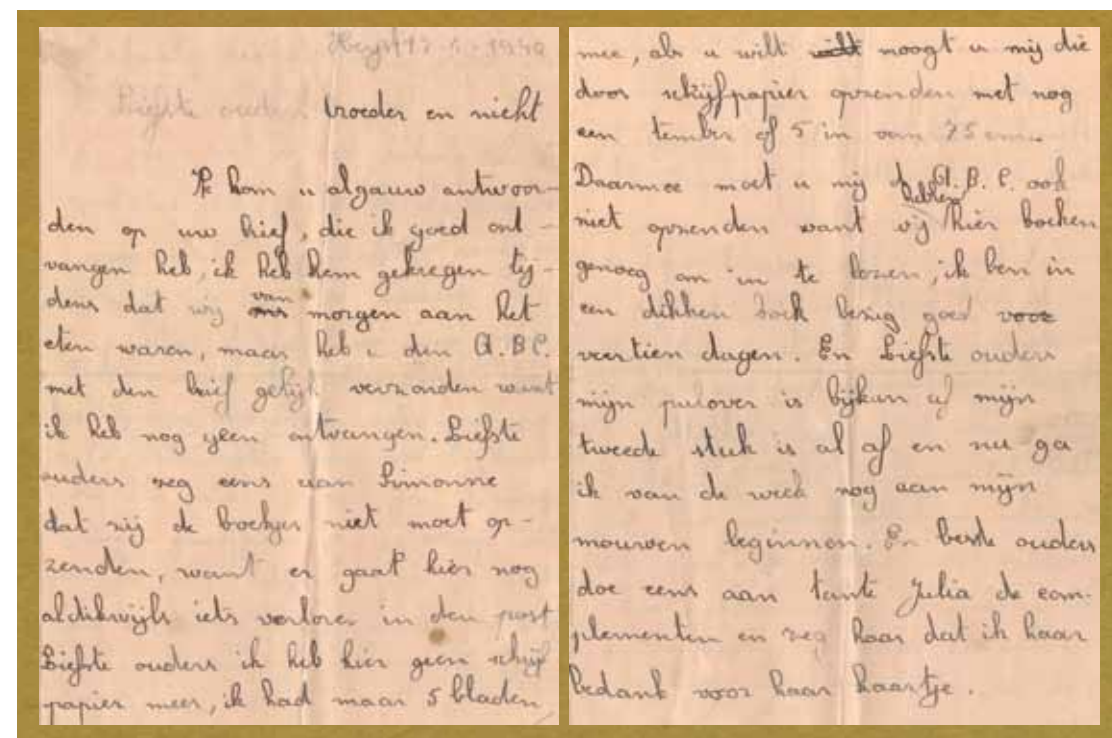 Heyst 12-5-1940
Liefste ouders broeder en nicht
Ik kom u algauw antwoor-
den op uw brief, die ik goed ont-
vangen heb, ik heb hem gekregen tij-
dens dat wij van morgen aan het
eten waren, maar heb u den A.B.C.
met den brief gelijk verzonden want
ik heb nog geen ontvangen. Liefste
ouders zeg eens aan Simonne
dat zij de boekjes niet moet op-
zenden, want er gaat hier nog
aldikwijls iets verloren in den post
Liefste ouders ik heb hier geen schrijf
papier meer, ik had maar 5 bladen
mee, als u wilt moogt u mij die
door schijfpapier opzenden met nog
een tember of 5 in van 75 cm.
Daarmee moet u mij de A.B.C. ook
niet opzenden want wij hebben hier boeken
genoeg om in te lezen, ik ben in
een dikken boek bezig goed voor
veertien dagen. En Liefste ouders
mijn pulover is bijkan af mijn
tweede stuk is al af en nu ga
ik van de week nog aan mijn
mouwen beginnen. En beste ouders
doe eens aan tante Julia de com-
plementen en zeg haar dat ik haar
bedank voor haar kaartje.